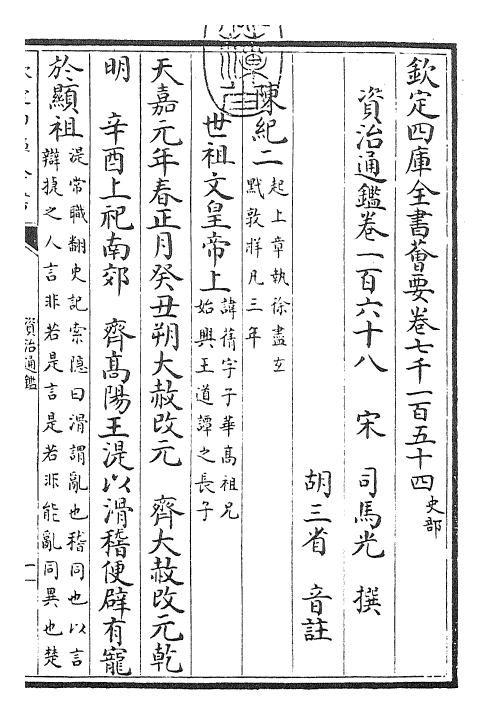 欽定四庫全書薈要卷七千一百五十四 史部
資治通鑑卷一百六十八 宋 司馬光 撰
胡三省 音註
陳紀二 起上章執徐盡玄
黓敦牂凡三年
世祖文皇帝上 諱蒨字子華高祖兄
始興王道譚之長子
天嘉元年春正月癸丑朔大赦改元 齊大赦改元乾
明 辛酉上祀南郊 齊高陽王湜以滑稽便辟有寵
於顯祖 湜常職翻史記索隱曰滑謂亂也稽同也以言
辯捷之人言非若是言是若非能亂同異也楚
資治通鑑
一